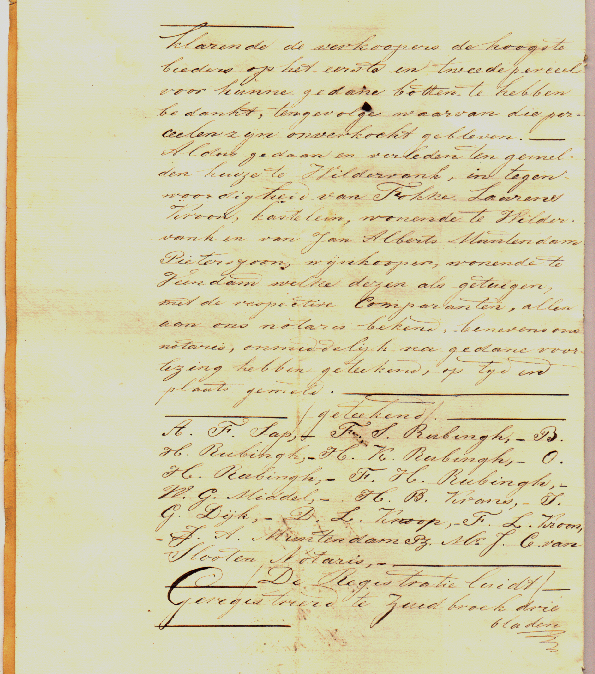 klarende de verkoopers de hoogste
bieders op het eerste en tweede perceel
voor hunne gedane botten te hebben
bedankt, tengevolge waarvan die per-
ceelen zyn onverkocht gebleven.
Aldus gedaan en verleden ten gemel-
den huize te Wildervank, in tegen-
woordigheid van Fokke Laurens
Kroon, kastelein, wonende te Wilder-
vank en van Jan Alberts Muntendam
Pieterszoon, wynkooper, wonende te
Veendam welke dezen als getuigen,
met de respectieve Comparanten, allen
aan ons notaris bekend, benevens ons
notaris, onmiddelyk na gedane voor-
lezing hebben geteekend, op tyd en
plaats gemeld.
(geteekend)
A. F. Sap,- F. S. Rubingh,- B.
H. Rubingh,- H. K. Rubingh,- O.
H. Rubingh,- F. H. Rubingh,-
W. G. Middel,- H. B. Krans,- S.
G. Dyk,- D. L. Knoop,- F. L. Kroon,
- J. A. Muntendam Pz. Mr. J. C. van
Slooten Notaris,-
(De Registratie luidt)
Geregistreerd te Zuidbroek drie
bladen